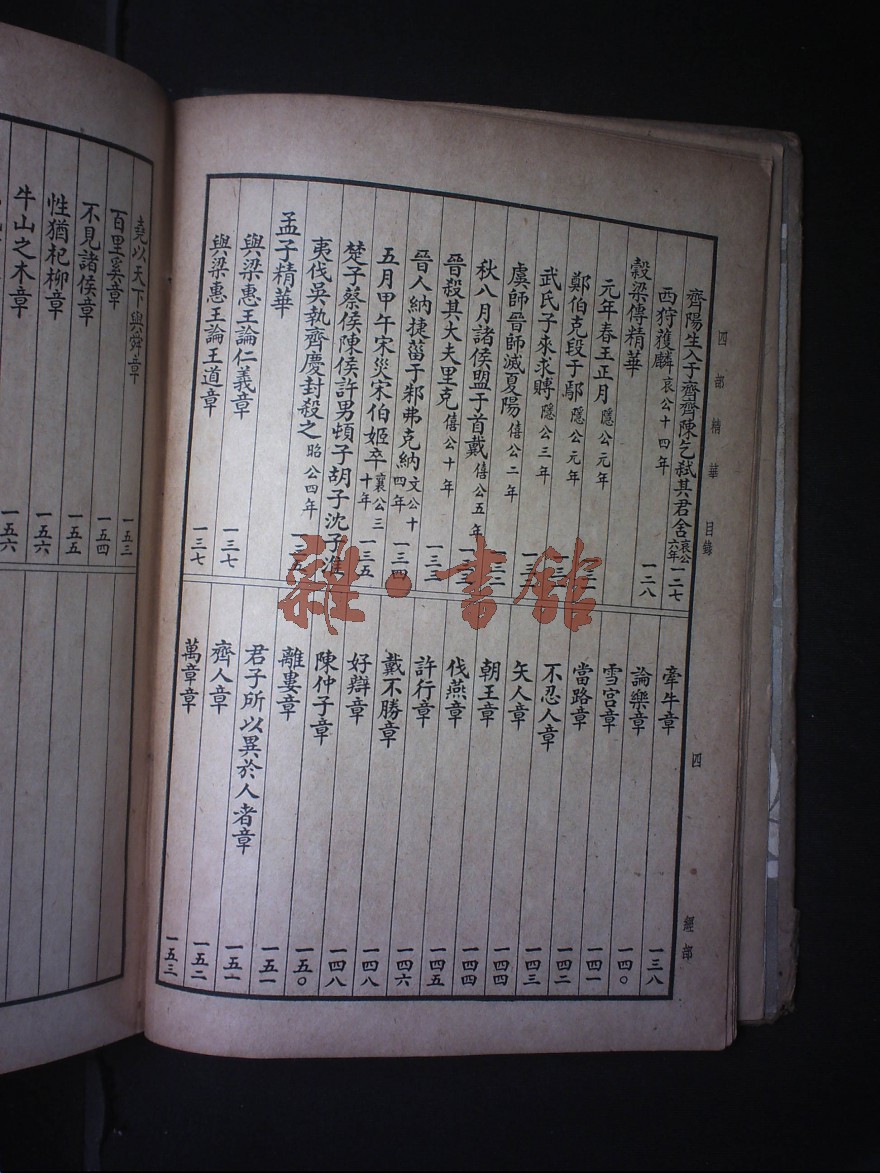 四部精華 目錄 四 經部
齊陽生入于齊齊陳乞弒其君舍 哀公六年 一二七
西狩獲麟 哀公十四年
穀梁傳精華 一二八
元年春王正月 隱公元年
鄭伯克段于鄢 隱公元年
武氏子來求賻 隱公三年
虞師晉師滅夏陽 僖公二年
秋八月諸侯盟于首戴 僖公五年
晉殺其大夫里克 僖公十年 一三三
晉人納捷菑于邾弗克納 文公十四年 一三四
五月甲午宋災宋伯姬卒 襄公三十年 一三五
楚子蔡侯陳侯許男頓子胡子沈子淮
夷伐吳執齊慶封殺之 昭公四年
孟子精華
與梁惠王論仁義章 一三七
與梁惠王論王道章 一三七
牽牛章 一三八
論樂章 一四〇
雪宮章 一四一
當路章 一四二
不忍人章 一四三
矢人章 一四四
朝王章 一四四
伐燕章 一四五
許行章 一四六
戴不勝章 一四八
好辯章 一四八
陳仲子章 一五〇
離婁章 一五一
君子所以異於人者章 一五一
齊人章 一五二
萬章章 一五三
堯以天下與舜章 一五三
百里奚章 一五四
不見諸侯章 一五五
性猶杞柳章 一五六
牛山之木章 一五六
雜·書館